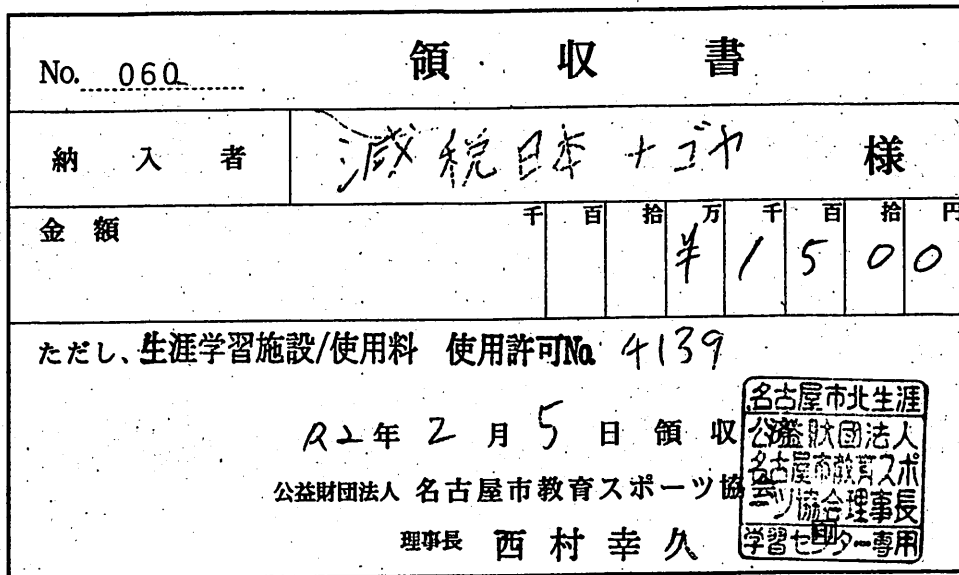 No. 060 領収書
納入者 減税日本ナゴヤ 様
金額 千 百 拾 万 千 百 拾 円
¥1500
ただし、生涯学習施設/使用料 使用許可No. 4139
R2年2月5日領収
公益財団法人 名古屋市教育スポーツ協会
理事長 西村幸久
名古屋市北生涯
公益財団法人
名古屋市教育スポ
ーツ協会理事長
印
学習センター専用